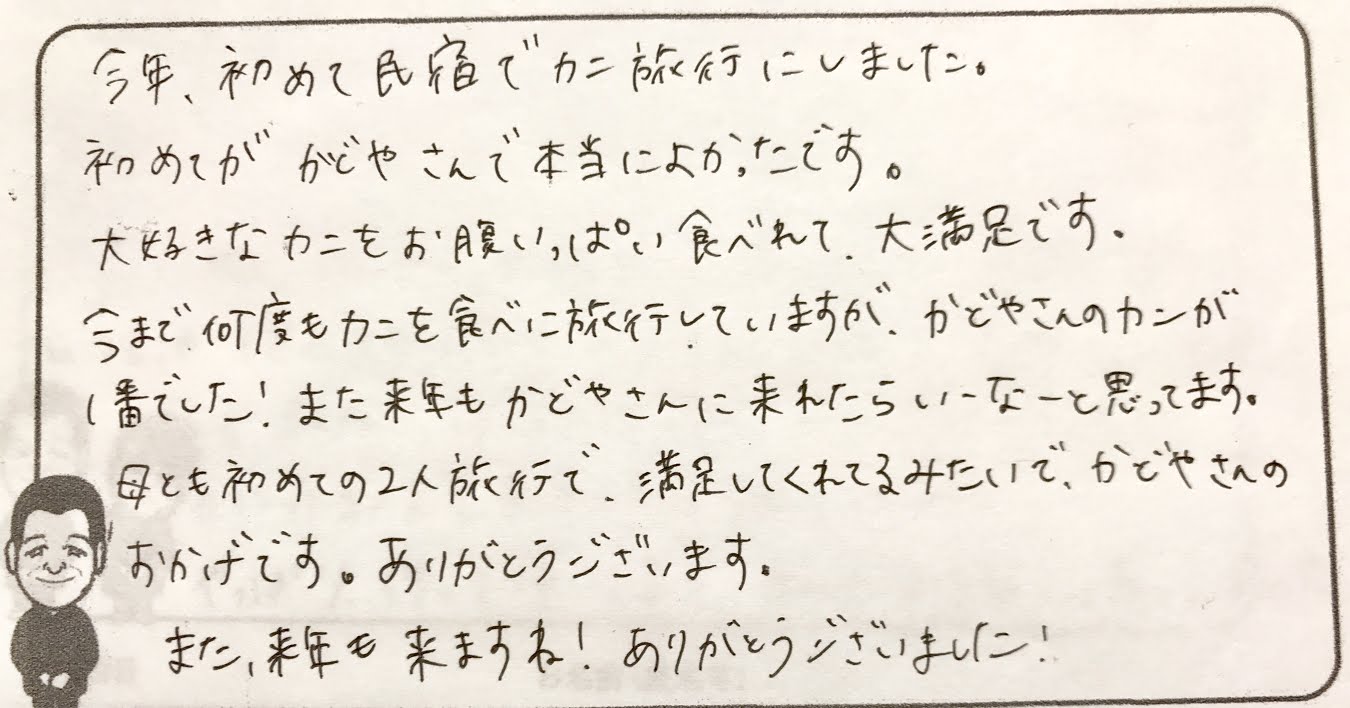 今年、初めて民宿でカニ旅行にしました。
初めてが かどやさんで本当によかったです。
大好きなカニをお腹いっぱい食べれて、大満足です。
今まで何度もカニを食べに旅行していますが、かどやさんのカニが
1番でした！また来年もかどやさんに来れたらいーなーと思ってます。
母とも初めての2人旅行で、満足してくれてるみたいで、かどやさんの
おかげです。ありがとうございます。
また、来年も来ますね！ありがとうございました！